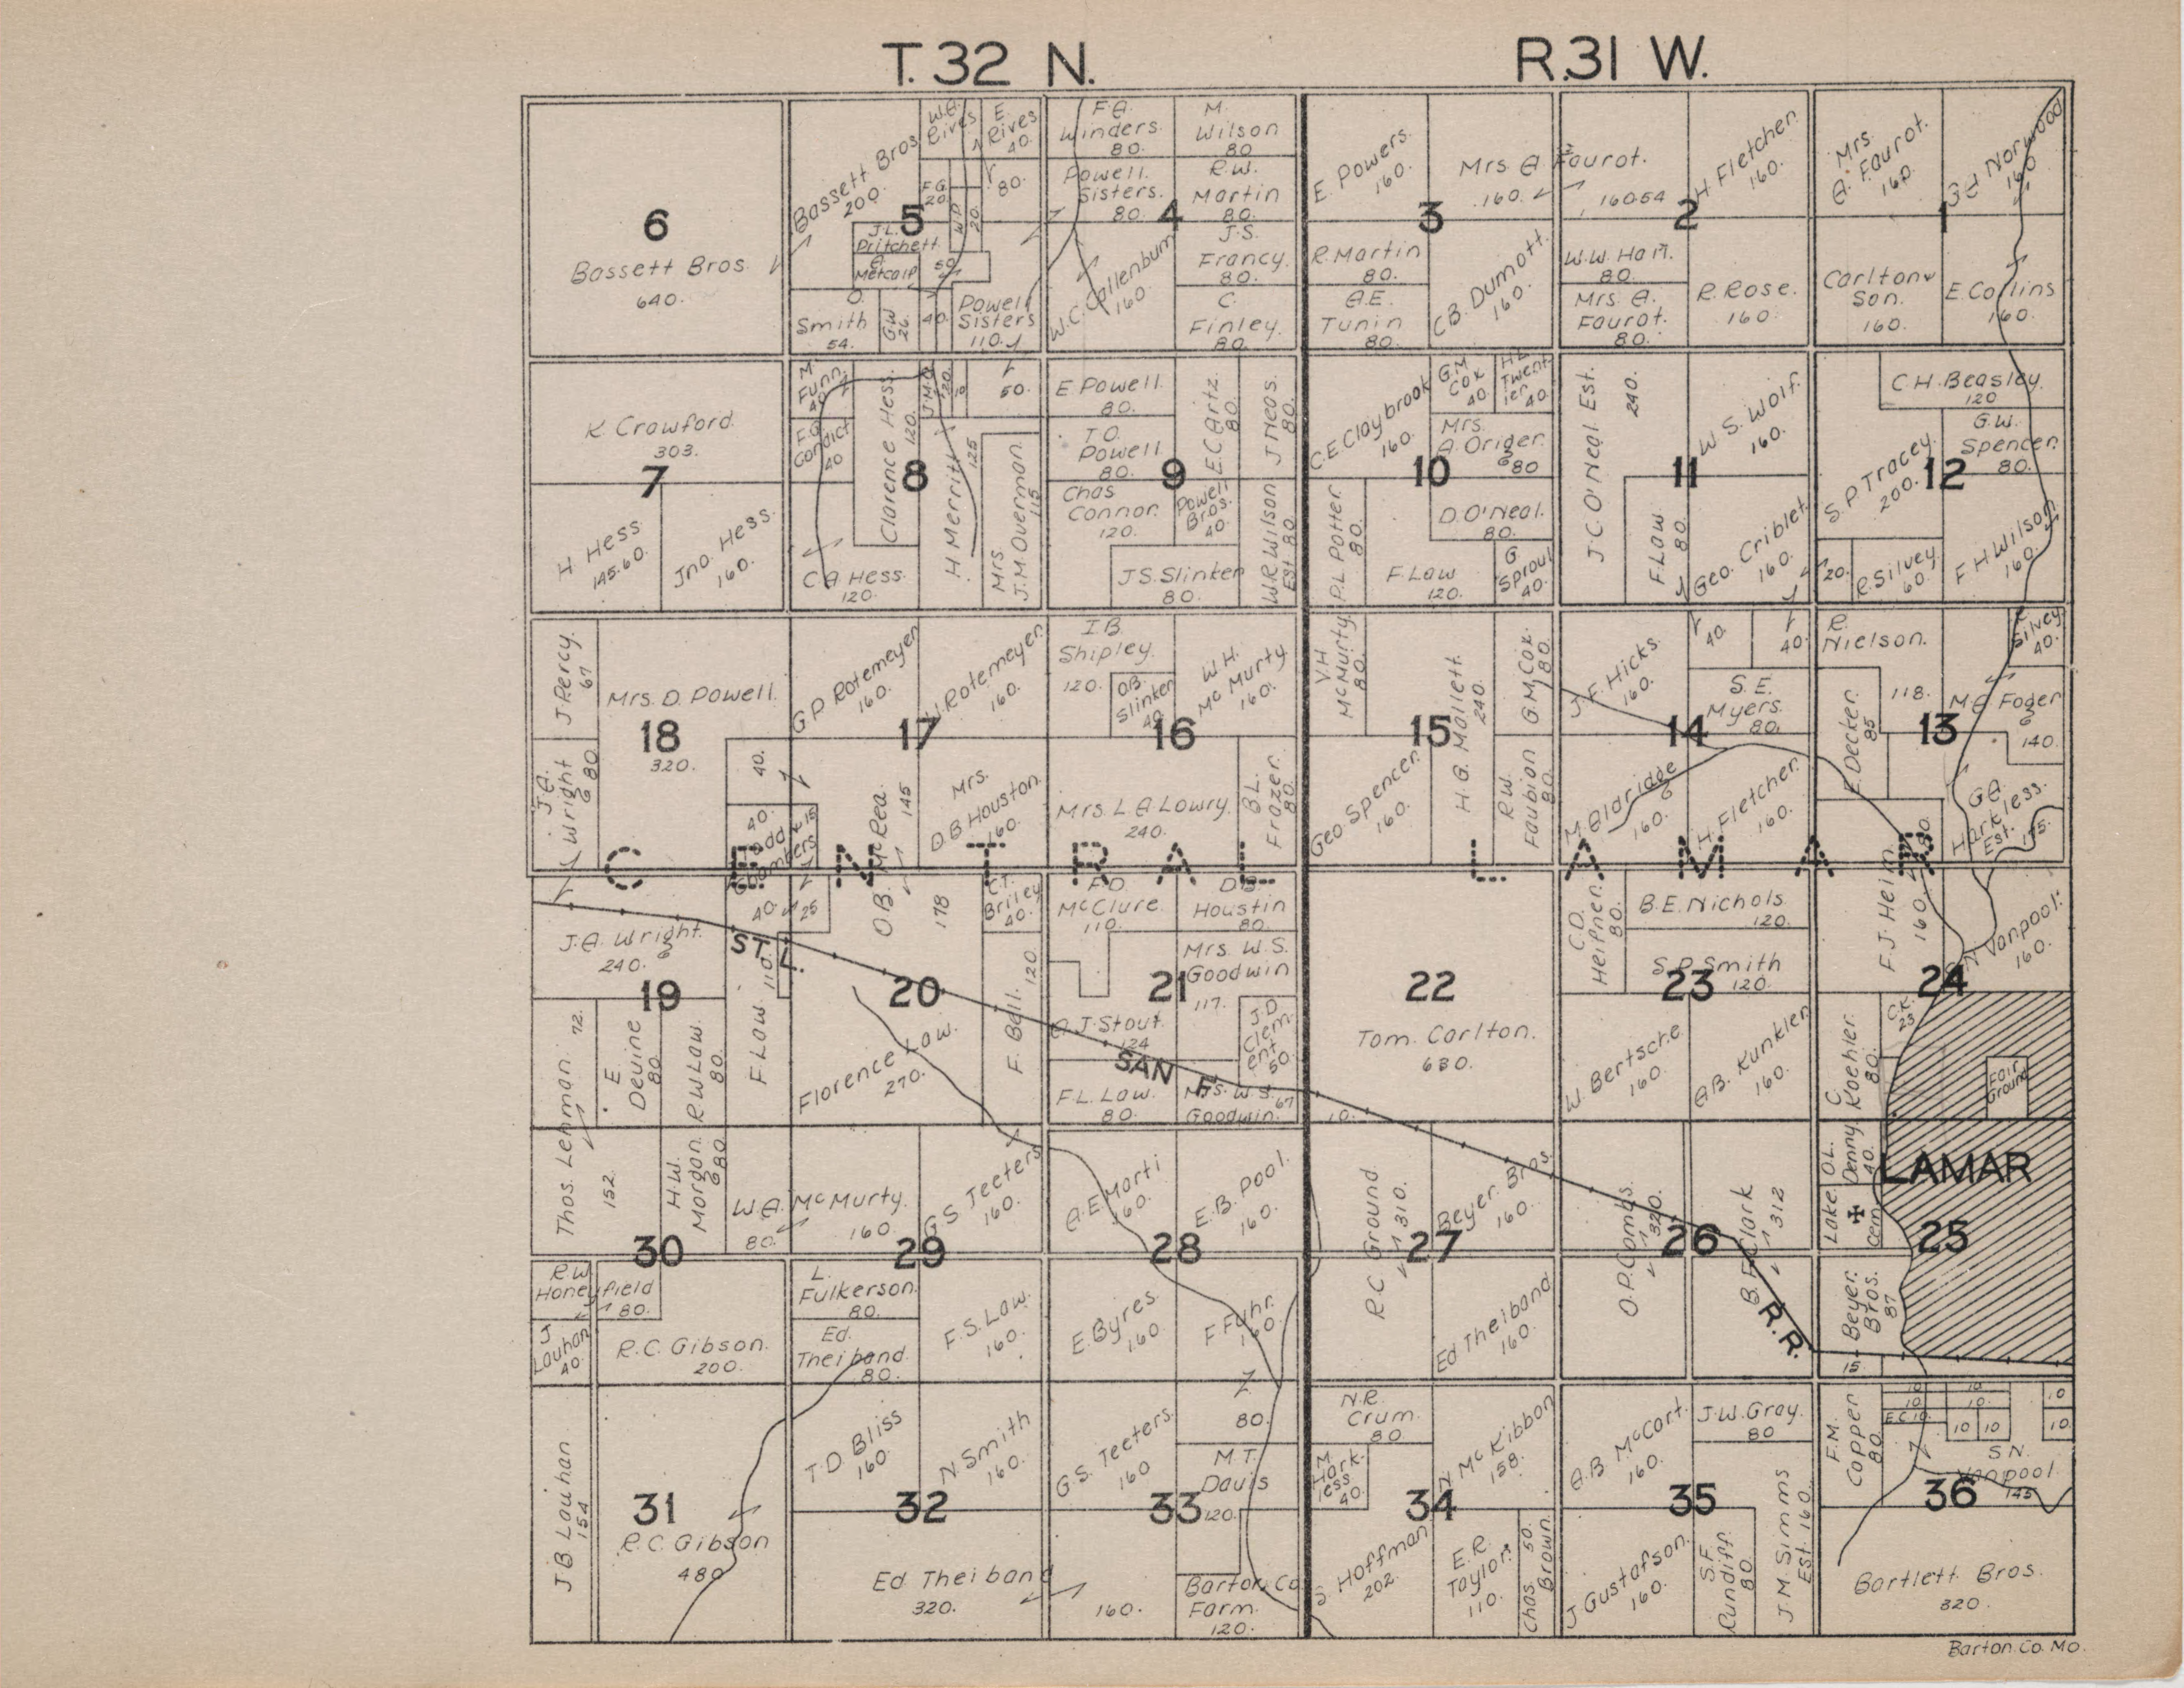 T. 32 N. R. 31 W.
6
Bassett Bros.
640.
Bassett Bros.
200.
W.A.
Rives
E.
Rives
40.
80.
F.G.
20.
W.P.
20.
5
J.L.
Pritchett
A.
Metcalf
50
O.
Smith
54.
G.W.
26.
40.
Powell
Sisters
110.
F.A.
Winders.
80.
M.
Wilson
80
Powell
Sisters.
80.
R.W.
Martin
80.
4
W.C. Callenburn
160.
J.S.
Francy.
80.
C.
Finley.
80.
E. Powers.
160.
Mrs A Faurot.
160.
160.54
3
R. Martin
80.
A.E.
Tunin
80.
C.B. Dumott.
160.
H. Fletcher.
160.
2
W.W. Harr.
80.
Mrs. A.
Faurot.
80.
R. Rose.
160.
Mrs.
A. Faurot.
160.
Norwood
160
1
Carlton &
Son.
160.
E. Collins
160.
K. Crawford.
303.
7
H. Hess.
145.60.
Jno. Hess.
160.
M.
Funn.
40
F.G.
Condict
40
Clarence Hess.
120.
J.M.O.
120.
10
50.
8
H. Merritt
125
Mrs.
J.M. Overman.
115
C.A. Hess.
120.
E. Powell.
80.
T.O.
Powell.
80.
E.C. Artz.
80.
J. Neas.
80.
9
Chas
Connor.
120.
Powell
Bros.
40.
W.R. Wilson
Est. 80.
J.S. Slinker
80.
C.E. Claybrook
160.
G.M.
Cox
40.
H.L.
Twent
ier.
40.
Mrs.
A. Origer.
80
10
P.L. Potter
80.
D. O'Neal.
80.
F. Law
120.
G.
Sproul
40.
J.C. O'Neal Est.
240.
W.S. Wolf.
160.
11
F. Law
80.
Geo. Criblet.
160.
C.H. Beasley.
120
G.W.
Spencer.
80.
S.P. Tracey.
200.
12
20.
R. Silvey
60.
F.H. Wilson
160.
J. Percy.
67
Mrs. D. Powell.
18
320.
J.A.
Wright
80.
40.
40.
Todd
Chambers
15
G.P. Rotemeyer
160.
Rotemeyer.
160.
17
O.B. McRea.
145
178
Mrs.
D.B. Houston.
160.
I.B.
Shipley.
120.
O.B.
Slinker
40
W.H.
McMurty
160.
16
Mrs. L.A. Lowry.
240.
B.L.
Frazer.
80.
V.H.
McMurty.
80.
H.G. Mallett.
240.
G.M. Cox.
80.
15
Geo. Spencer.
160.
R.W.
Faubion
80.
J.F. Hicks.
160.
40.
40.
S.E.
Myers.
80.
14
M. Aldridge
160.
H. Fletcher.
160.
R.
Nielson.
118.
R.
Silvey
40.
F. Decker.
85
M.C. Foger
140.
13
G.A.
Harkless.
Est.
175.
CENTRAL LAMAR
J.A. Wright.
240.
40.
25
ST. L.
19
72.
E.
Devine
80
R.W. Law.
80.
F. Law.
110.
Thos. Lehman.
152.
20
Florence Law.
270.
C.T.
Briley
40.
F. Bell.
120.
F.D.
McClure.
110.
D.B.
Houstin
80.
Mrs. W.S.
Goodwin
117.
21
A.J. Stout.
124
J.D.
Clem-
ent
50.
SAN F.
F.L. Law.
80.
Mrs. W.S.
67
Goodwin.
22
Tom. Carlton.
630.
10.
C.D.
Heifner.
80.
B.E. Nichols.
120.
S.P. Smith
120.
23
W. Bertsche.
160.
A.B. Kunkler.
160.
F.J. Heim.
160.
80.
Vanpool.
160.
24
C.K.
23
C.
Koehler.
80.
Fair
Ground
H.W.
Morgan.
80
W.A. McMurty.
80.
160.
30
R.W.
Honeyfield
80.
J.
Louhan
40.
R.C. Gibson.
200.
G.S. Teeters.
160.
29
L.
Fulkerson.
80.
Ed.
Theiband.
80.
F.S. Law.
160.
A.E. Marti
160.
E.B. Pool.
160.
28
E. Byres.
160.
F. Fuhr.
160.
R.C. Ground
310.
Beyer. Bros.
160.
27
Ed Theiband.
160.
O.P. Combs.
320.
B.F. Clark
312
26
R.R.
O.L.
Denny.
40.
LAMAR
Lake
Cem.
25
Beyer.
Bros.
87
15
J.B. Louhan.
154
31
R.C. Gibson
480
T.D. Bliss
160.
N. Smith
160.
32
Ed. Theiband
320.
160.
G.S. Teeters.
160
80.
M.T.
Davis
120.
33
Barton Co.
Farm.
120.
N.R.
Crum.
80.
M.
Hark-
less.
40.
N. McKibbon
158.
34
S. Hoffman
202.
E.R.
Taylor.
110.
Chas. Brown.
50.
A.B. McCart.
160.
J.W. Gray.
80
35
J. Gustafson.
160.
S.F.
Cundiff.
80
J.M. Simms
Est. 160.
F.M.
Copper
80.
10
10
10
10.
E.C. 10.
10
10
10
10.
S.N.
Vanpool.
145
36
Bartlett. Bros.
320.
Barton. Co. Mo.